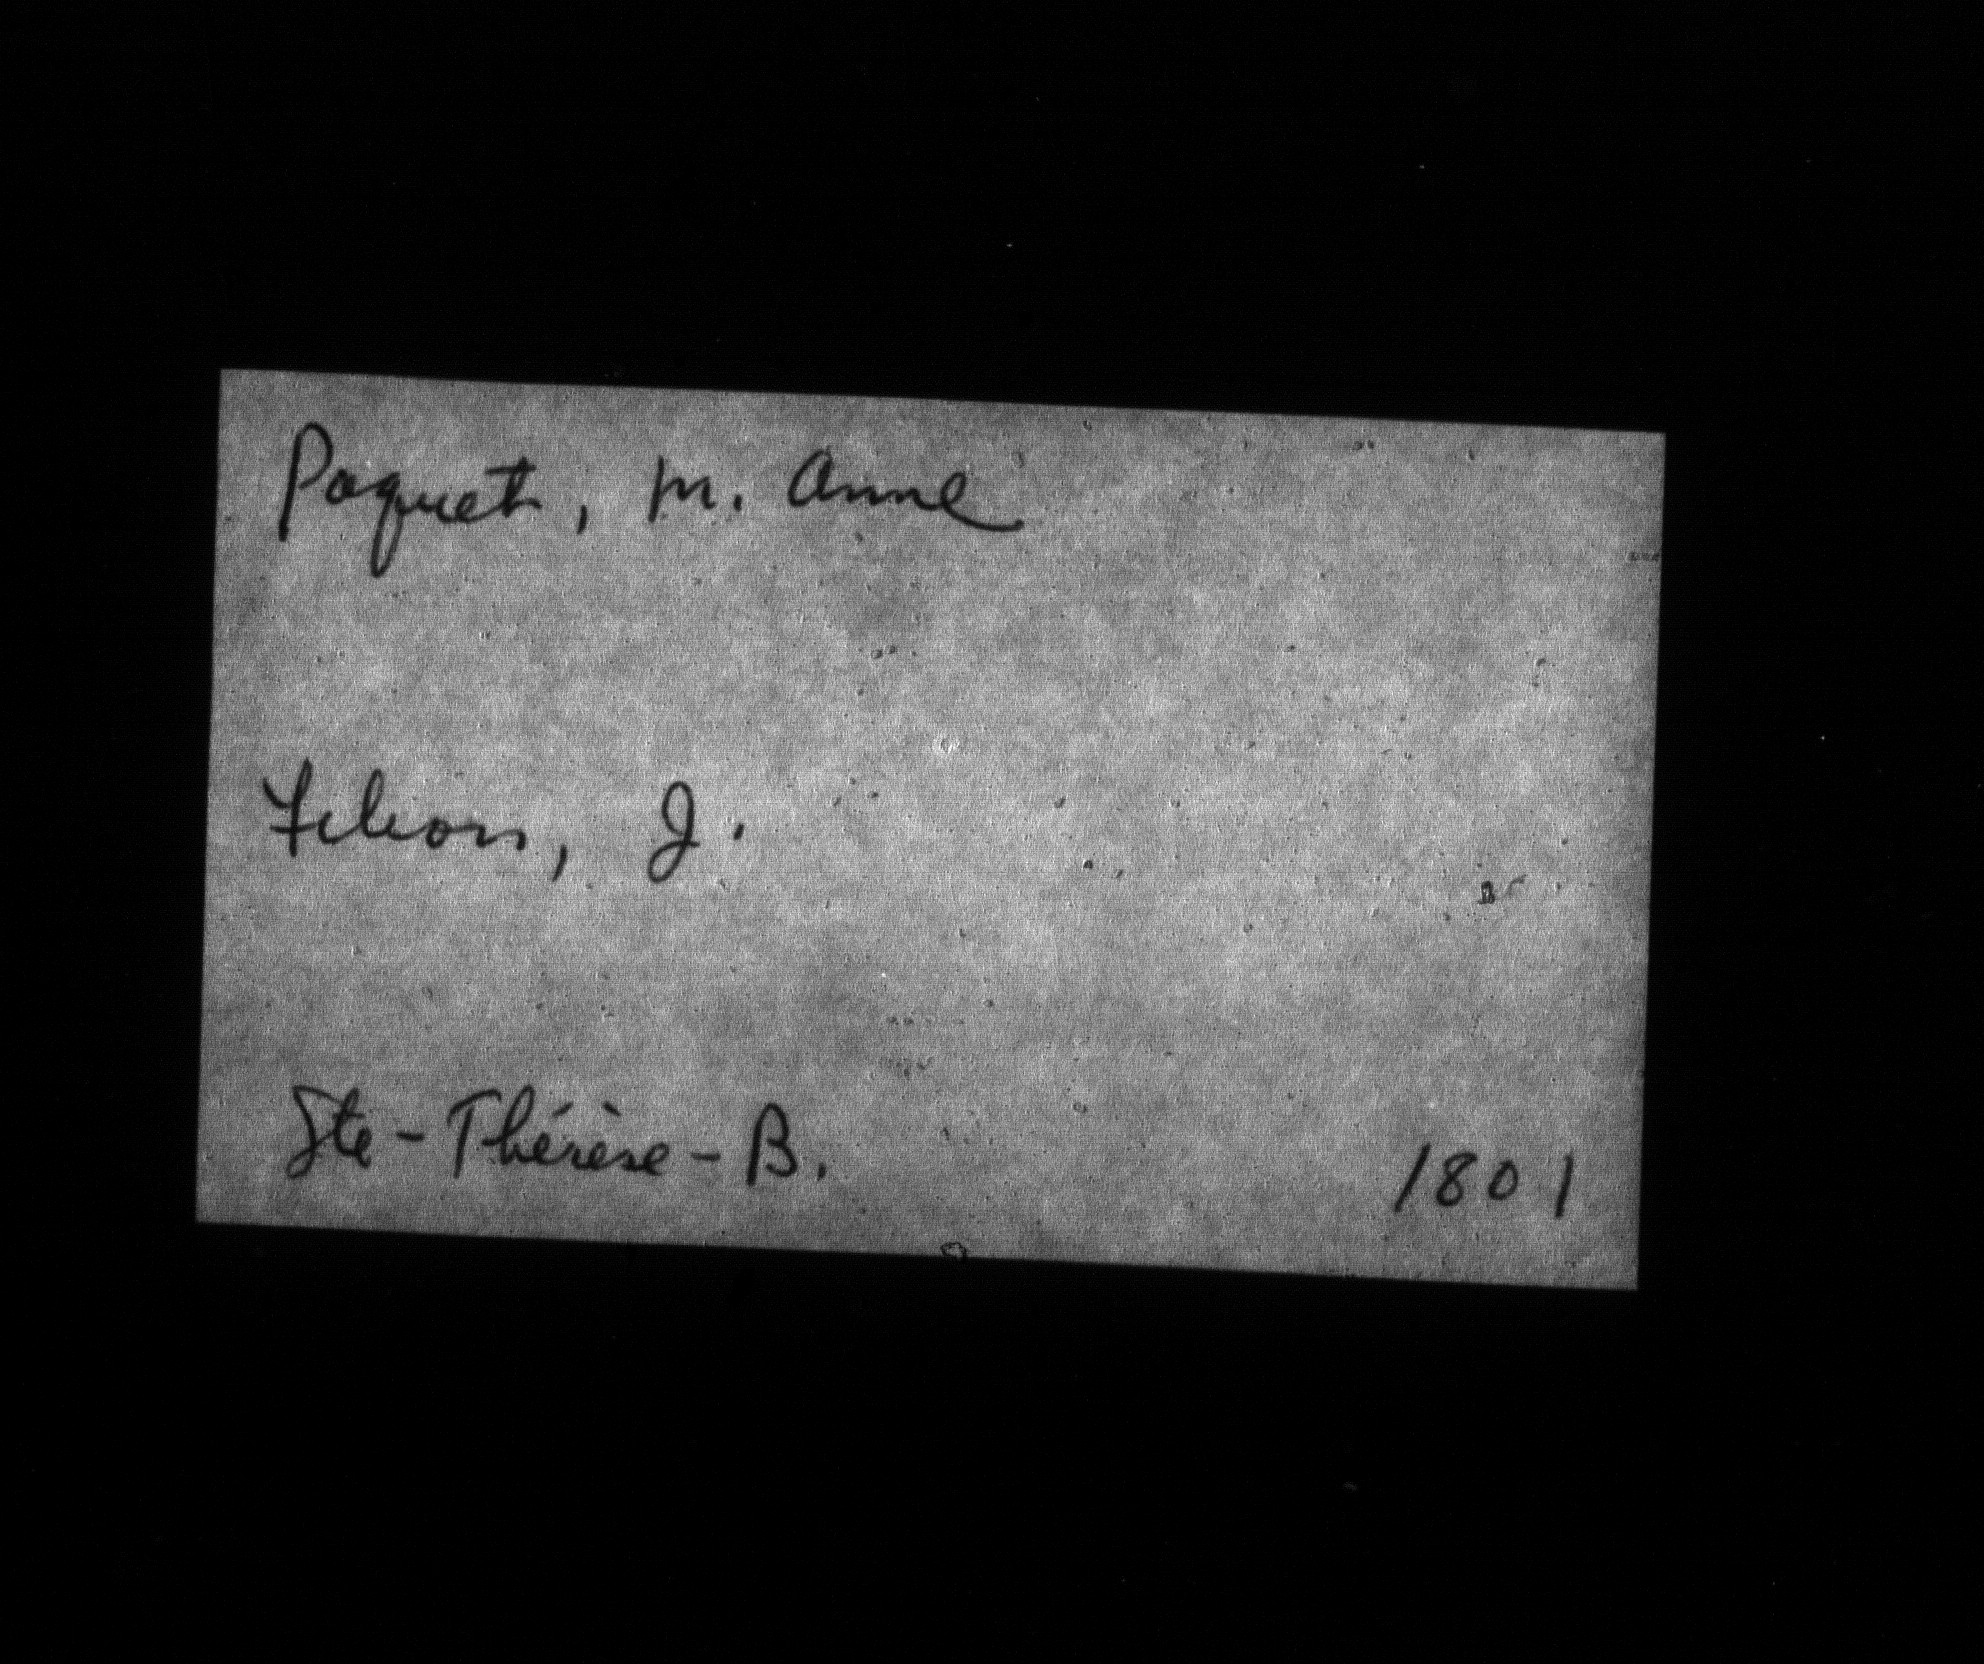 Paquet, M. Anne
Filion, J.
Ste-Thérèse-B. 1801